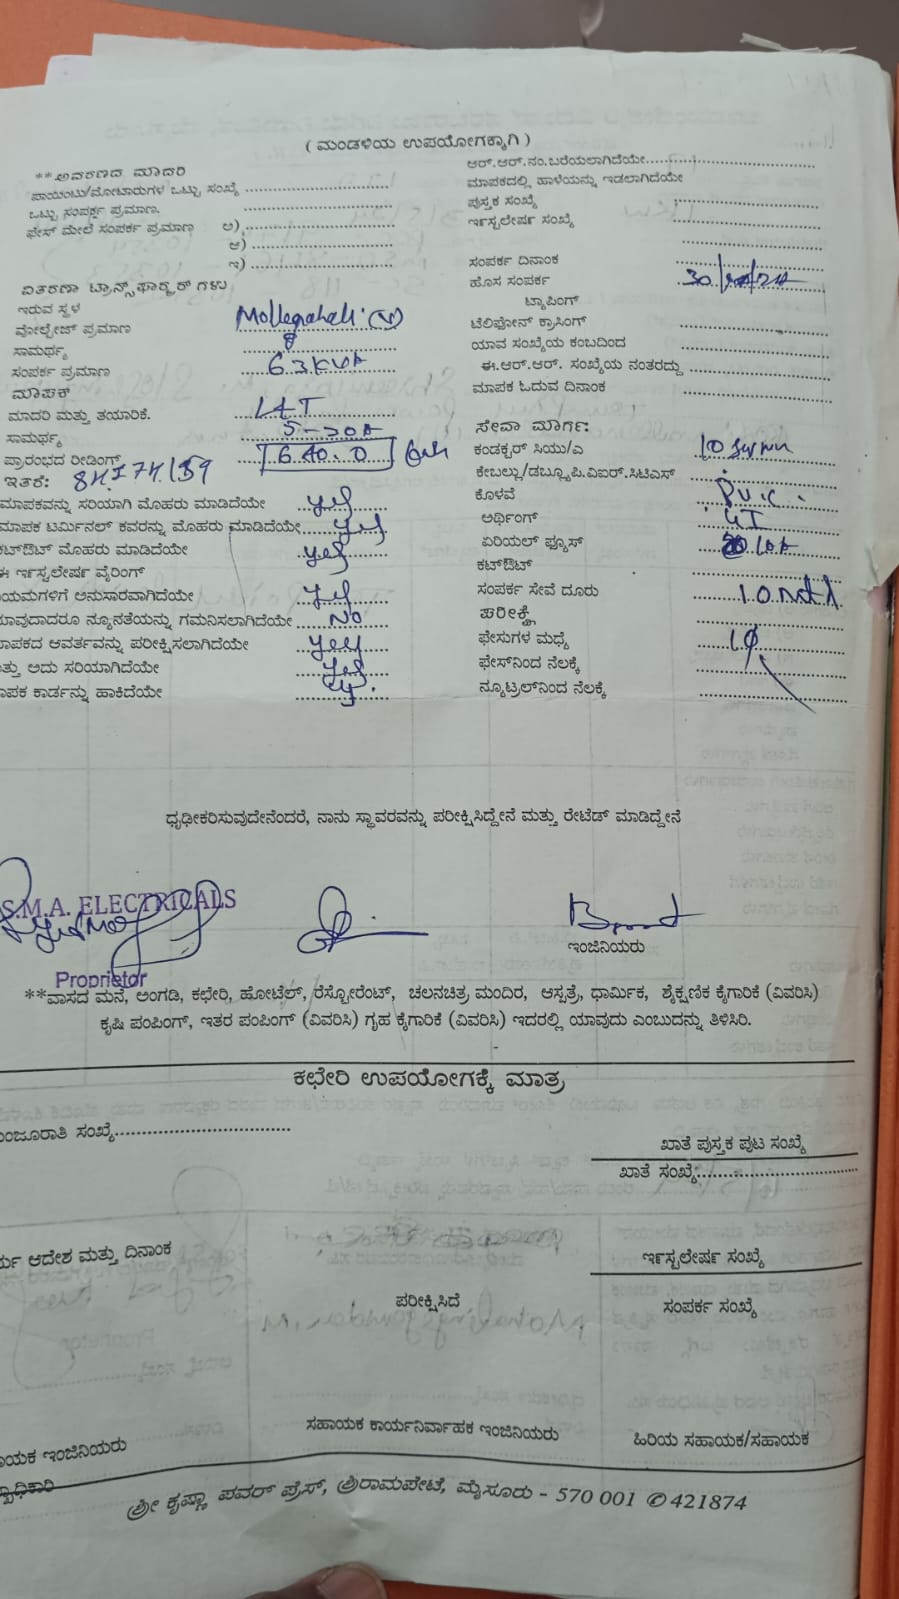 ( ಮಂಡಳಿಯ ಉಪಯೋಗಕ್ಕಾಗಿ )
**ಆವರಣದ ಮಾದರಿ
ಪಾಯಿಂಟು/ಮೋಟಾರುಗಳ ಒಟ್ಟು ಸಂಖ್ಯೆ
ಒಟ್ಟು ಸಂಪರ್ಕ ಪ್ರಮಾಣ.
ಫೇಸ್ ಮೇಲೆ ಸಂಪರ್ಕ ಪ್ರಮಾಣ ಅ)
ಆ)
ಇ)
ವಿತರಣಾ ಟ್ರಾನ್ಸ್‌ಫಾರ್ಮರ್‌ಗಳು
ಇರುವ ಸ್ಥಳ Mollegahali (V)
ವೋಲ್ಟೇಜ್ ಪ್ರಮಾಣ
ಸಾಮರ್ಥ್ಯ
ಸಂಪರ್ಕ ಪ್ರಮಾಣ 63 KVA
ಮಾಪಕ
ಮಾದರಿ ಮತ್ತು ತಯಾರಿಕೆ. L&T
ಸಾಮರ್ಥ್ಯ 5-20A
ಪ್ರಾರಂಭದ ರೀಡಿಂಗ್ 640.0
ಇತರೆ:
ಮಾಪಕವನ್ನು ಸರಿಯಾಗಿ ಮೊಹರು ಮಾಡಿದೆಯೇ yes
ಮಾಪಕ ಟರ್ಮಿನಲ್ ಕವರನ್ನು ಮೊಹರು ಮಾಡಿದೆಯೇ yes
ಕಟ್‌ಔಟ್ ಮೊಹರು ಮಾಡಿದೆಯೇ yes
ಈ ಇನ್ಸ್ಟಲೇಷನ್ ವೈರಿಂಗ್
ಯಮಗಳಿಗೆ ಅನುಸಾರವಾಗಿದೆಯೇ yes
ಯಾವುದಾದರೂ ನ್ಯೂನತೆಯನ್ನು ಗಮನಿಸಲಾಗಿದೆಯೇ No
ಮಾಪಕದ ಆವರ್ತವನ್ನು ಪರೀಕ್ಷಿಸಲಾಗಿದೆಯೇ yes
ಮತ್ತು ಅದು ಸರಿಯಾಗಿದೆಯೇ yes
ಮಾಪಕ ಕಾರ್ಡನ್ನು ಹಾಕಿದೆಯೇ
ಆರ್.ಆರ್.ನಂ.ಬರೆಯಲಾಗಿದೆಯೇ
ಮಾಪಕದಲ್ಲಿ ಹಾಳೆಯನ್ನು ಇಡಲಾಗಿದೆಯೇ
ಪುಸ್ತಕ ಸಂಖ್ಯೆ
ಇನ್ಸ್ಟಲೇಷನ್ ಸಂಖ್ಯೆ
ಸಂಪರ್ಕ ದಿನಾಂಕ
ಹೊಸ ಸಂಪರ್ಕ
ಟ್ಯಾಪಿಂಗ್
ಟೆಲಿಫೋನ್ ಕ್ರಾಸಿಂಗ್
ಯಾವ ಸಂಖ್ಯೆಯ ಕಂಬದಿಂದ
ಈ.ಆರ್.ಆರ್. ಸಂಖ್ಯೆಯ ನಂತರದ್ದು
ಮಾಪಕ ಓದುವ ದಿನಾಂಕ
ಸೇವಾ ಮಾರ್ಗ:
ಕಂಡಕ್ಟರ್ ಸಿಯು/ಎ
ಕೇಬಲ್ಲು/ಡಬ್ಲ್ಯೂ.ಪಿ.ವಿಐರ್.ಸಿಟಿಎಸ್
ಕೊಳವೆ P.V.C.
ಅರ್ಥಿಂಗ್ GI
ಏರಿಯಲ್ ಫ್ಯೂಸ್
ಕಟ್‌ಔಟ್
ಸಂಪರ್ಕ ಸೇವೆ ದೂರು
ಪರೀಕ್ಷೆ
ಫೇಸುಗಳ ಮಧ್ಯೆ 1φ
ಫೇಸ್‌ನಿಂದ ನೆಲಕ್ಕೆ
ನ್ಯೂಟ್ರಲ್‌ನಿಂದ ನೆಲಕ್ಕೆ
ಧೃಢೀಕರಿಸುವುದೇನೆಂದರೆ, ನಾನು ಸ್ಥಾವರವನ್ನು ಪರೀಕ್ಷಿಸಿದ್ದೇನೆ ಮತ್ತು ರೇಟೆಡ್ ಮಾಡಿದ್ದೇನೆ
S.M.A. ELECTRICALS
Proprietor
ಇಂಜಿನಿಯರು
**ವಾಸದ ಮನೆ, ಅಂಗಡಿ, ಕಛೇರಿ, ಹೋಟೆಲ್, ರೆಸ್ಟೋರೆಂಟ್, ಚಲನಚಿತ್ರ ಮಂದಿರ, ಆಸ್ಪತ್ರೆ, ಧಾರ್ಮಿಕ, ಶೈಕ್ಷಣಿಕ ಕೈಗಾರಿಕೆ (ವಿವರಿಸಿ)
ಕೃಷಿ ಪಂಪಿಂಗ್, ಇತರ ಪಂಪಿಂಗ್ (ವಿವರಿಸಿ) ಗೃಹ ಕೈಗಾರಿಕೆ (ವಿವರಿಸಿ) ಇದರಲ್ಲಿ ಯಾವುದು ಎಂಬುದನ್ನು ತಿಳಿಸಿರಿ.
ಕಛೇರಿ ಉಪಯೋಗಕ್ಕೆ ಮಾತ್ರ
ಮಂಜೂರಾತಿ ಸಂಖ್ಯೆ
ಖಾತೆ ಪುಸ್ತಕ ಪುಟ ಸಂಖ್ಯೆ
ಖಾತೆ ಸಂಖ್ಯೆ:
ರ್ಯ ಆದೇಶ ಮತ್ತು ದಿನಾಂಕ
ಇನ್ಸ್ಟಲೇಷನ್ ಸಂಖ್ಯೆ
ಪರೀಕ್ಷಿಸಿದೆ
ಸಂಪರ್ಕ ಸಂಖ್ಯೆ
ಾಯಕ ಇಂಜಿನಿಯರು
ಸಹಾಯಕ ಕಾರ್ಯನಿರ್ವಾಹಕ ಇಂಜಿನಿಯರು
ಹಿರಿಯ ಸಹಾಯಕ/ಸಹಾಯಕ
ಶ್ರೀ ಕೃಷ್ಣಾ ಪವರ್ ಪ್ರೆಸ್, ಶ್ರೀರಾಮಪೇಟೆ, ಮೈಸೂರು - 570 001 ✆ 421874